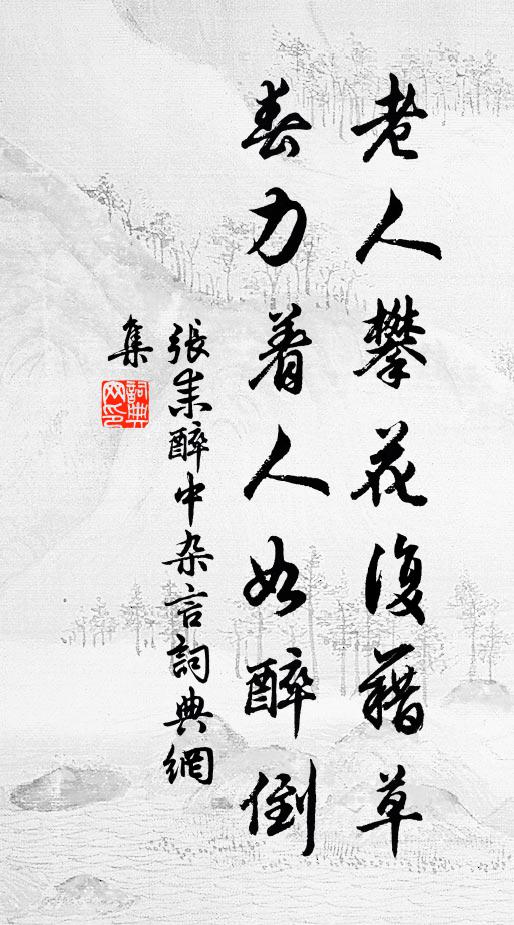 老人攀花復藉草
春力着人如醉倒
張耒醉中杂言詞典網
集
詞典
网印